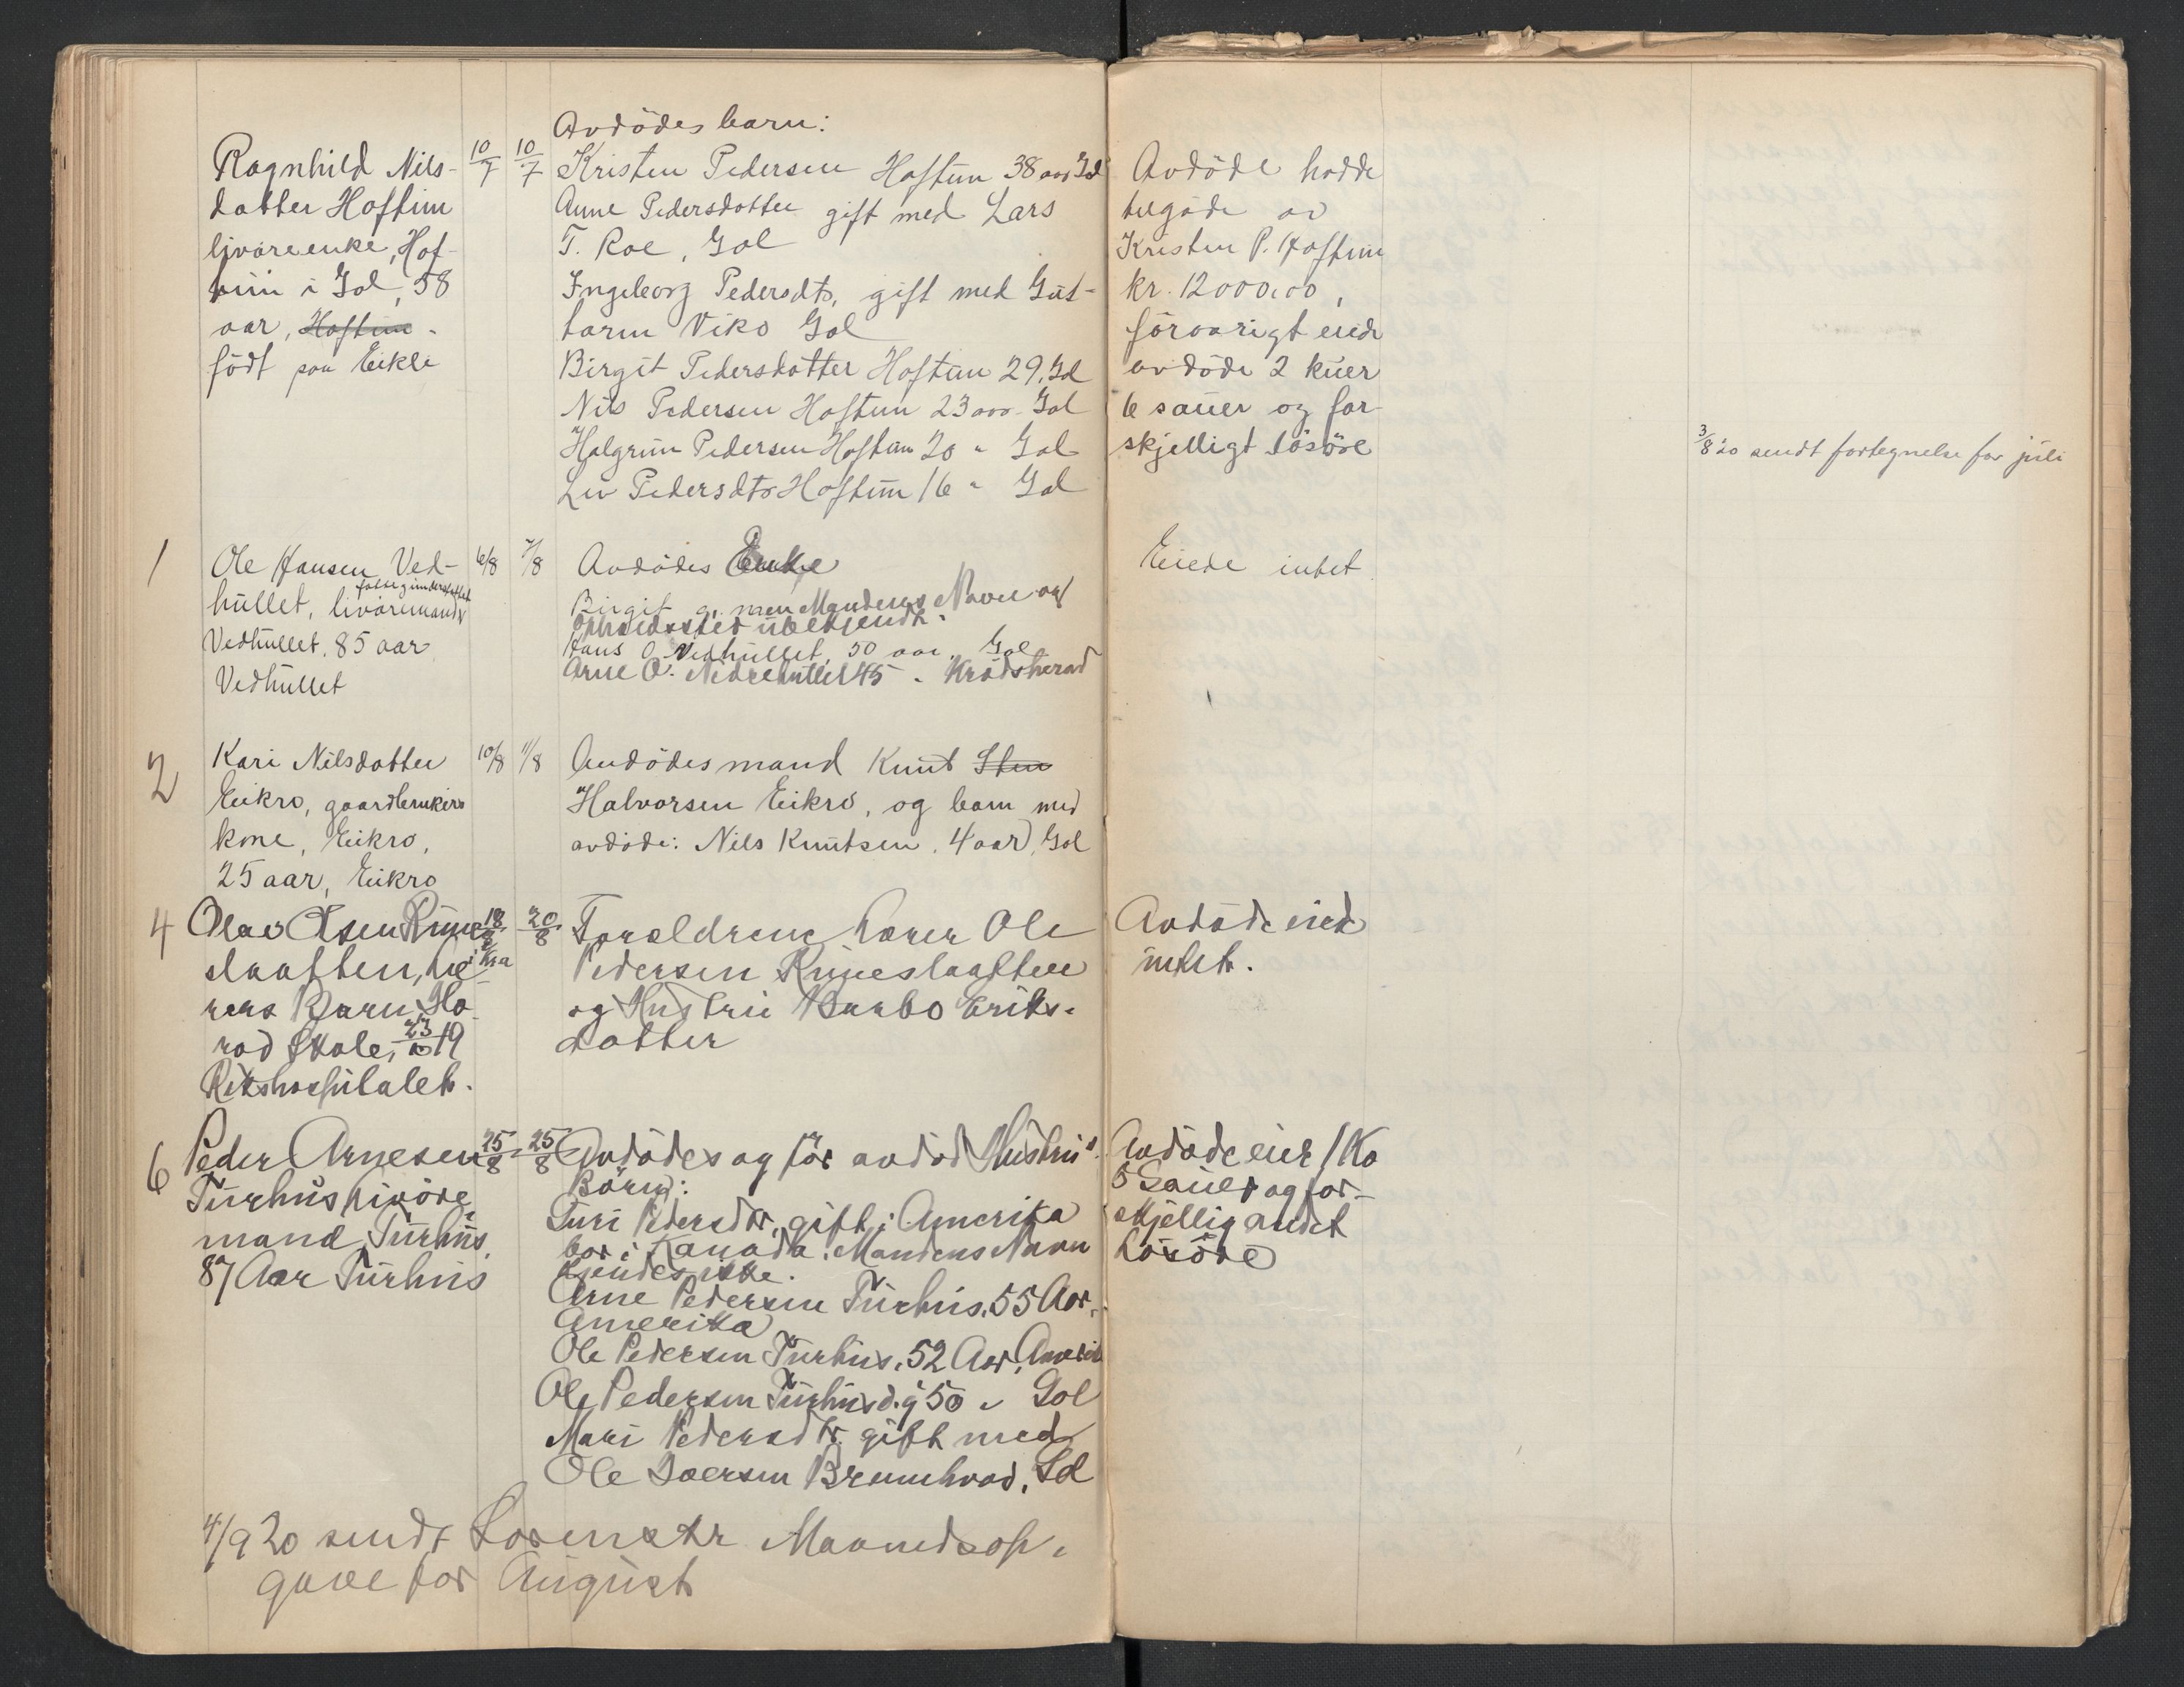 Avdödes barn:
Ragnhild Nils-
datter Hoftun
livöreenke, Hof-
tun i Gol, 58
aar, Hoftun -
födt paa Eikli
10/7
10/7
Kristen Pedersen Hoftun 38 aar Gol
Anne Pedersdatter gift med Lars
T. Roe, Gol
Ingeborg Pedersdtr, gift med Gut-
torm Viko Gol
Birgit Pedersdatter Hoftun 29, Gol
Nils Pedersen Hoftun 23 aar Gol
Halgrim Pedersen Hoftun 20 " Gol
Liv Pedersdtr Hoftun 16 " Gol
Avdöde hadde
tilgode av
Kristen P. Hoftun
kr. 12000,00,
forövrigt eiede
avdöde 2 kuer
6 sauer og for-
skjelligt lösöre
3/8 20 sendt fortegnelse for juli
1
Ole Hansen Ved-
hullet, livöremand
Vedhullet, 85 aar
Vedhullet
6/8
7/8
Avdödes Enke
Birgit g. men Mandens Navn og
Opholdssted ubekjendt.
Hans O. Vedhullet, 50 aar, Gol
Arne O. Vedhullet 45 " Krödsherad
Eiede intet
2
Kari Nilsdatter
Eikro, gaardbrukers
kone, Eikro,
25 aar, Eikro
10/8
11/8
Avdödes mand Knut Sten
Halvorsen Eikro, og barn med
avdöde: Nils Knutsen, 4 aar, Gol
4
Olav Olsen Rune-
slaatten, læ-
rers Barn, He-
rad Skole, 23/10 19
Rikshospitalet.
18/8
i Kra
20/8
Foreldrene Lærer Ole
Pedersen Runeslaatten
og Hustru Barbo Eriks-
datter
Avdöde eied
intet.
6
Peder Arnesen
Turhus, livöre-
mand, Turhus,
87 Aar Turhus
25/8
25/8
Avdödes og för avdöd Hustru's
Börn:
Guri Pedersdtr, gift i Amerika
bor i Kanada. Mandens Navn
kjendes ikke.
Arne Pedersen Turhus, 55 Aar,
Amerika
Ole Pedersen Turhus, 52 Aar, Amerik
Ole Pedersen Turhus d.y 50 " Gol
Mari Pedersdtr. gift med
Ole Saersen Bromhvad, Gol
Avdöde eier 1 Ko
5 Sauer og for-
skjellig andet
Lösöre
4/9 20 sendt Sorenskr Maanedsop-
gave for August